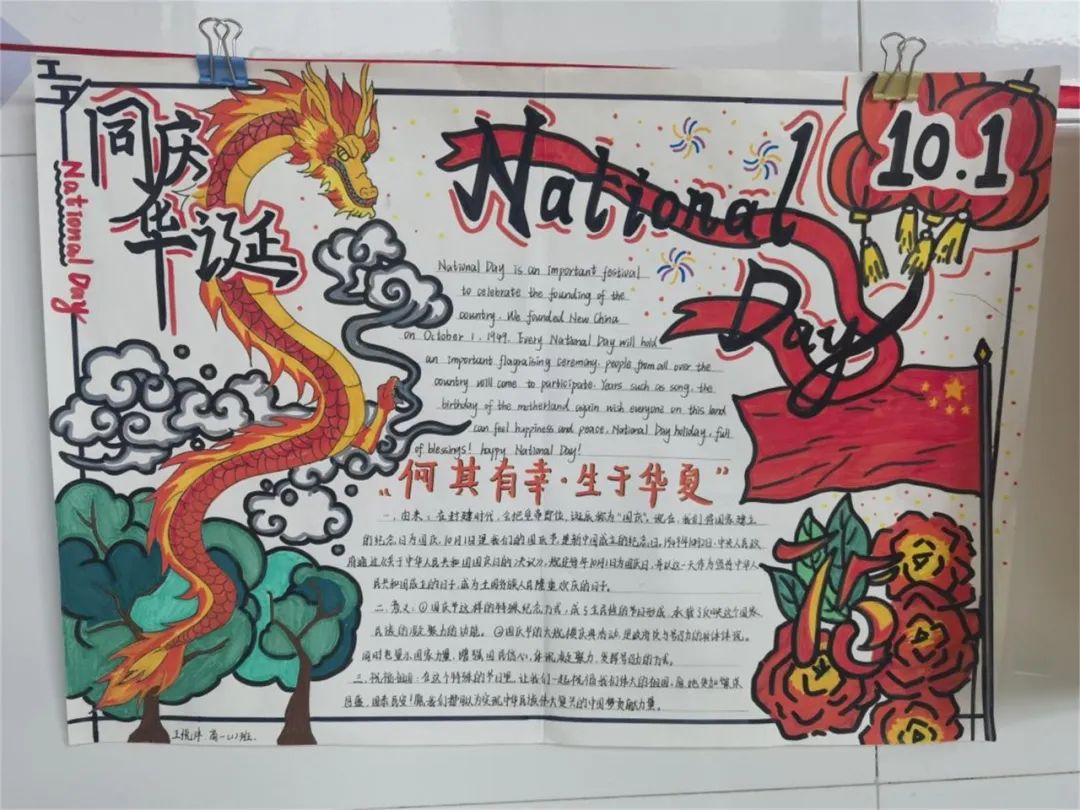 同庆
华诞
National Day
National
Day
10.1
National Day is an important festival
to celebrate the founding of the
country. We founded New China
on October 1, 1949. Every National Day will hold
an important flagraising ceremony. people from all over the
country will come to participate. Years such as song, the
birthday of the motherland again wish everyone on this land
can feel happiness and peace, National Day holiday, full
of blessings! happy National Day!
“何其有幸·生于华夏”
一、由来：在封建时代，会把皇帝即位、诞辰称为“国庆”。现在，我们将国家建立
的纪念日为国庆。10月1日是我们的国庆节是新中国成立的纪念日，1949年10月2日，中央人民政
府通过《关于中华人民共和国国庆日的决议》，规定每年10月1日为国庆日，并以这一天作为宣告中华人
民共和国成立的日子，成为全国各族人民隆重欢庆的日子。
二、意义：①国庆节这样的特殊纪念方式，成了全民族的节日形式，承载了反映这个国家、
民族的凝聚力的功能。②国庆节的大规模庆典活动，是政府动员与号召力的具体体现。
同时也显示国家力量，增强国民信心，体现凝聚力，发挥号召力的方式。
三、祝福祖国：在这个特殊的节日里，让我们一起祝福我们伟大的祖国，
昌盛，国泰民安！愿我们都为实现中华民族伟大复兴的中国梦贡献力量。
高一(1)班.